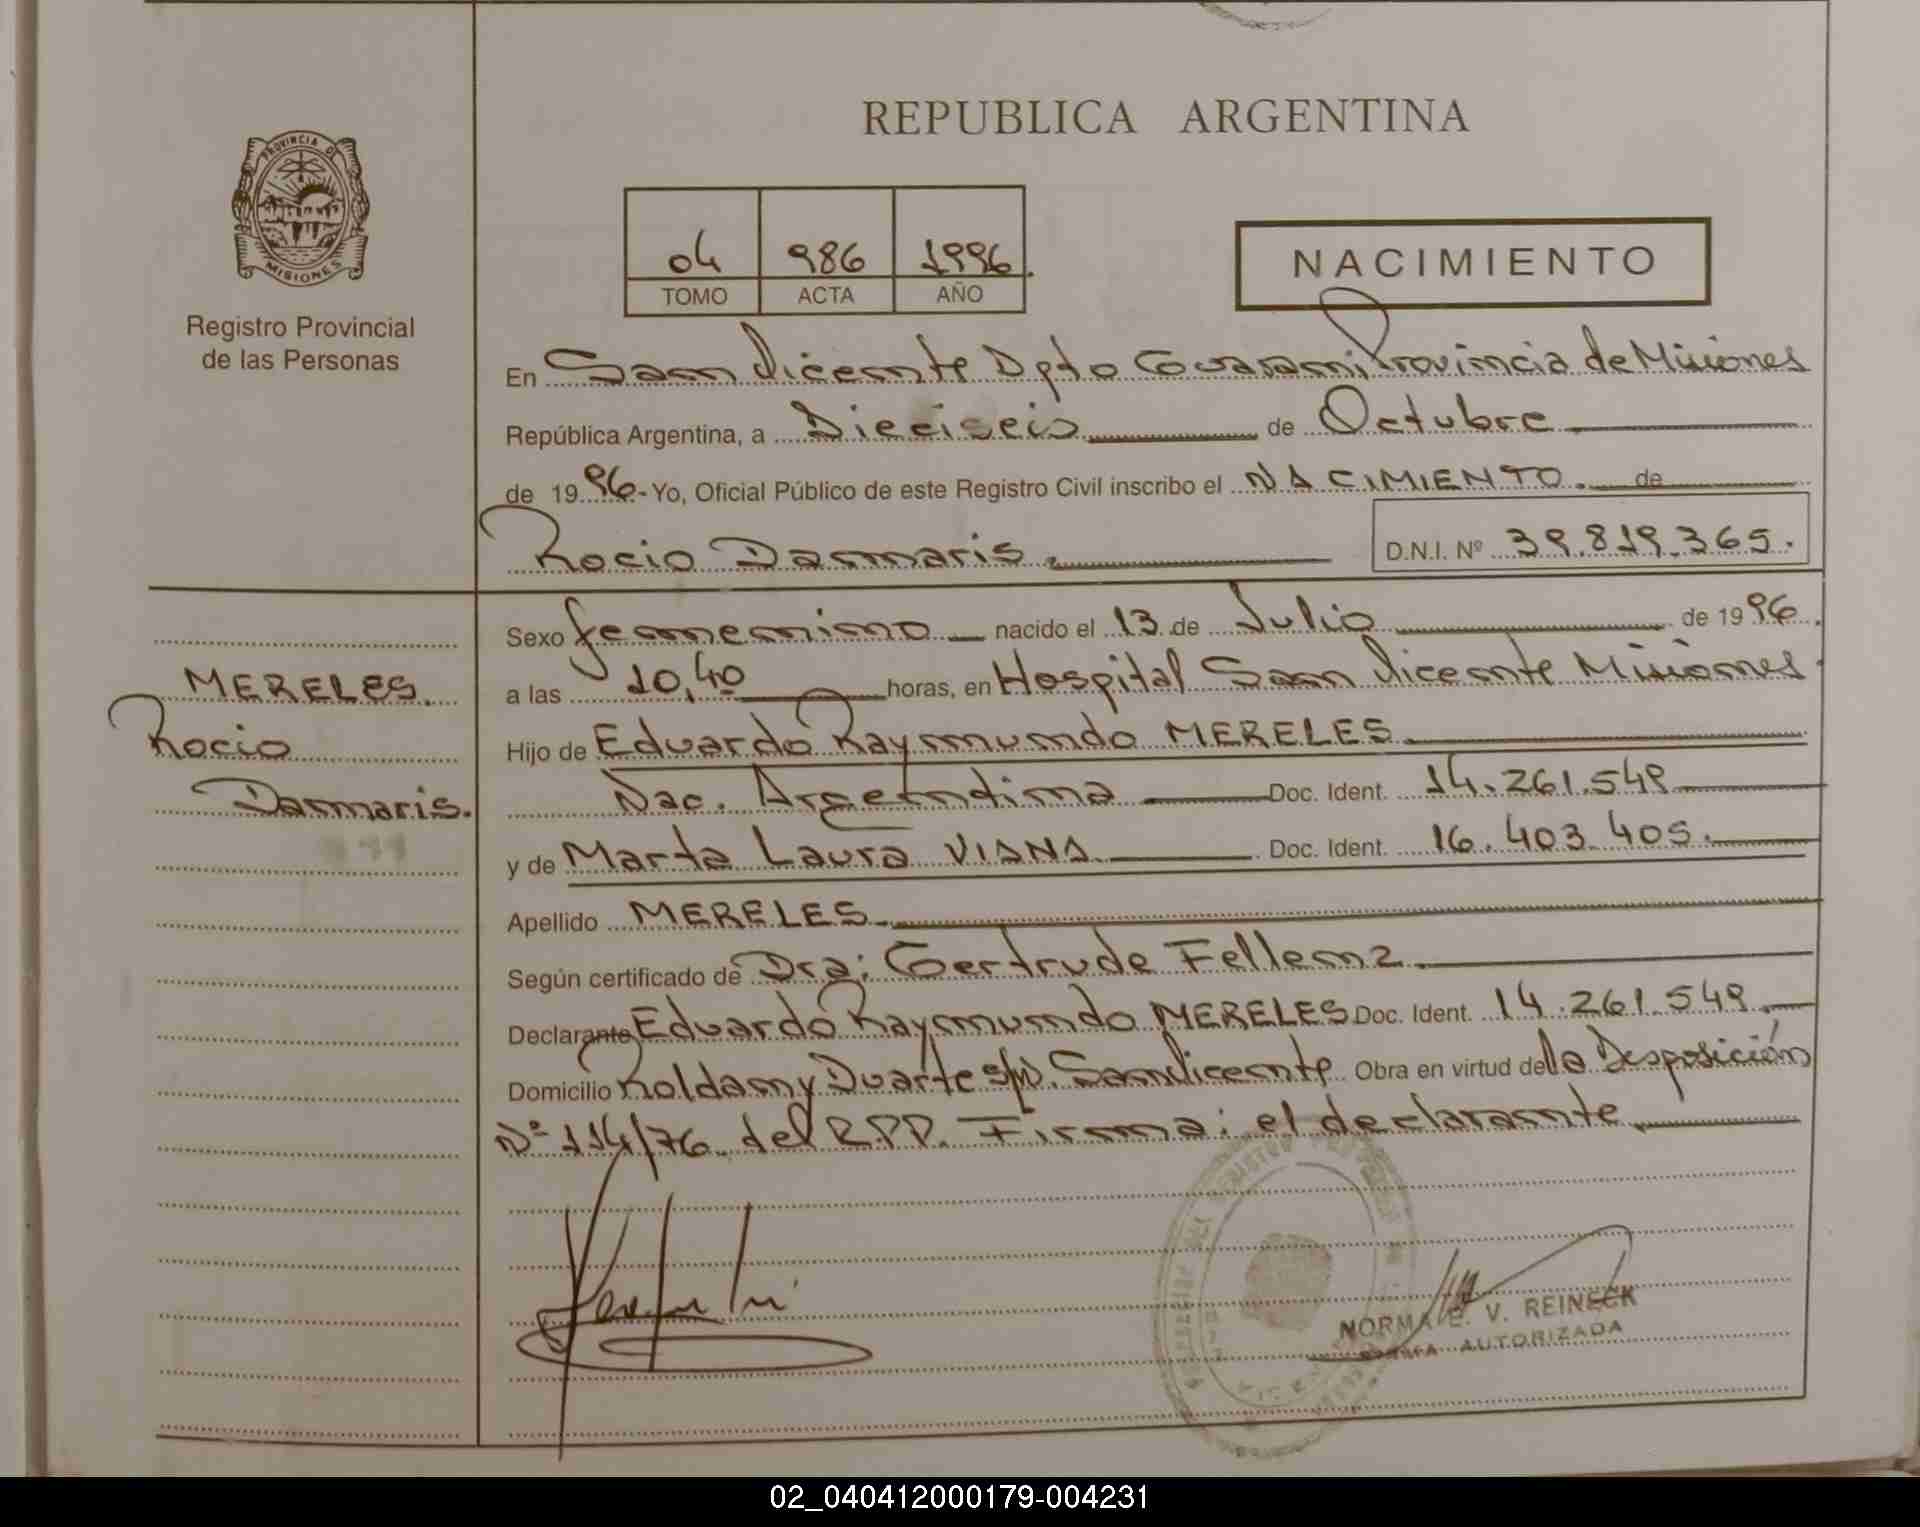 REPUBLICA ARGENTINA
PROVINCIA DE
MISIONES
Registro Provincial
de las Personas
04 986 1996.
TOMO ACTA AÑO
NACIMIENTO
En San Vicente Dpto Guarani, Provincia de Misiones
República Argentina, a Dieciseis de Octubre
de 1996 - Yo, Oficial Público de este Registro Civil inscribo el NACIMIENTO. de
Rocio Damaris. D.N.I. Nº 39.819.365.
MERELES.
Rocio
Damaris.
Sexo femenino nacido el 13 de Julio de 1996.
a las 10,40 horas, en Hospital San Vicente Misiones.
Hijo de Eduardo Raymundo MERELES.
Nac. Argentina Doc. Ident. 14.261.549
y de Marta Laura VIANA. Doc. Ident. 16.403.405.
Apellido MERELES.
Según certificado de Dra: Gertrude Fellenz.
Declarante Eduardo Raymundo MERELES Doc. Ident. 14.261.549.
Domicilio Roldan y Duarte s/n. San Vicente Obra en virtud de la Desposición
Nº 114/76 del R.P.P. Firma: el declarante.
NORMA E. V. REINECK
FIRMA AUTORIZADA
02_040412000179-004231